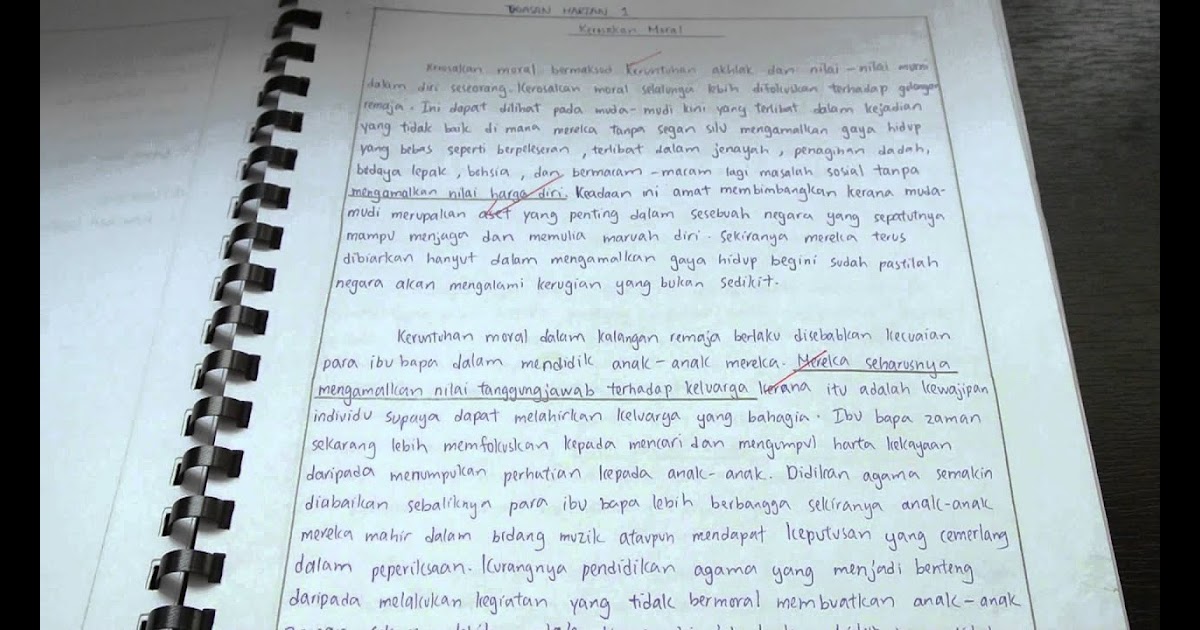 TUGASAN HARIAN 1
Kerosakan Moral
Kerosakan moral bermaksud keruntuhan akhlak dan nilai-nilai murni
dalam diri seseorang. Kerosakan moral selalunya lebih difokuskan terhadap golongan
remaja. Ini dapat dilihat pada muda-mudi kini yang terlibat dalam kejadian
yang tidak baik di mana mereka tanpa segan silu mengamalkan gaya hidup
yang bebas seperti berpeleseran, terlibat dalam jenayah, penagihan dadah,
budaya lepak, bohsia, dan bermacam-macam lagi masalah sosial tanpa
mengamalkan nilai harga diri. Keadaan ini amat membimbangkan kerana muda-
mudi merupakan aset yang penting dalam sesebuah negara yang sepatutnya
mampu menjaga dan memulia maruah diri. Sekiranya mereka terus
dibiarkan hanyut dalam mengamalkan gaya hidup begini sudah pastilah
negara akan mengalami kerugian yang bukan sedikit.
Keruntuhan moral dalam kalangan remaja berlaku disebabkan kecuaian
para ibu bapa dalam mendidik anak-anak mereka. Mereka seharusnya
mengamalkan nilai tanggungjawab terhadap keluarga kerana itu adalah kewajipan
individu supaya dapat melahirkan keluarga yang bahagia. Ibu bapa zaman
sekarang lebih memfokuskan kepada mencari dan mengumpul harta kekayaan
daripada menumpukan perhatian kepada anak-anak. Didikan agama semakin
diabaikan sebaliknya para ibu bapa lebih berbangga sekiranya anak-anak
mereka mahir dalam bidang muzik ataupun mendapat keputusan yang cemerlang
dalam peperiksaan. Kurangnya pendidikan agama yang menjadi benteng
daripada melakukan kegiatan yang tidak bermoral membuatkan anak-anak